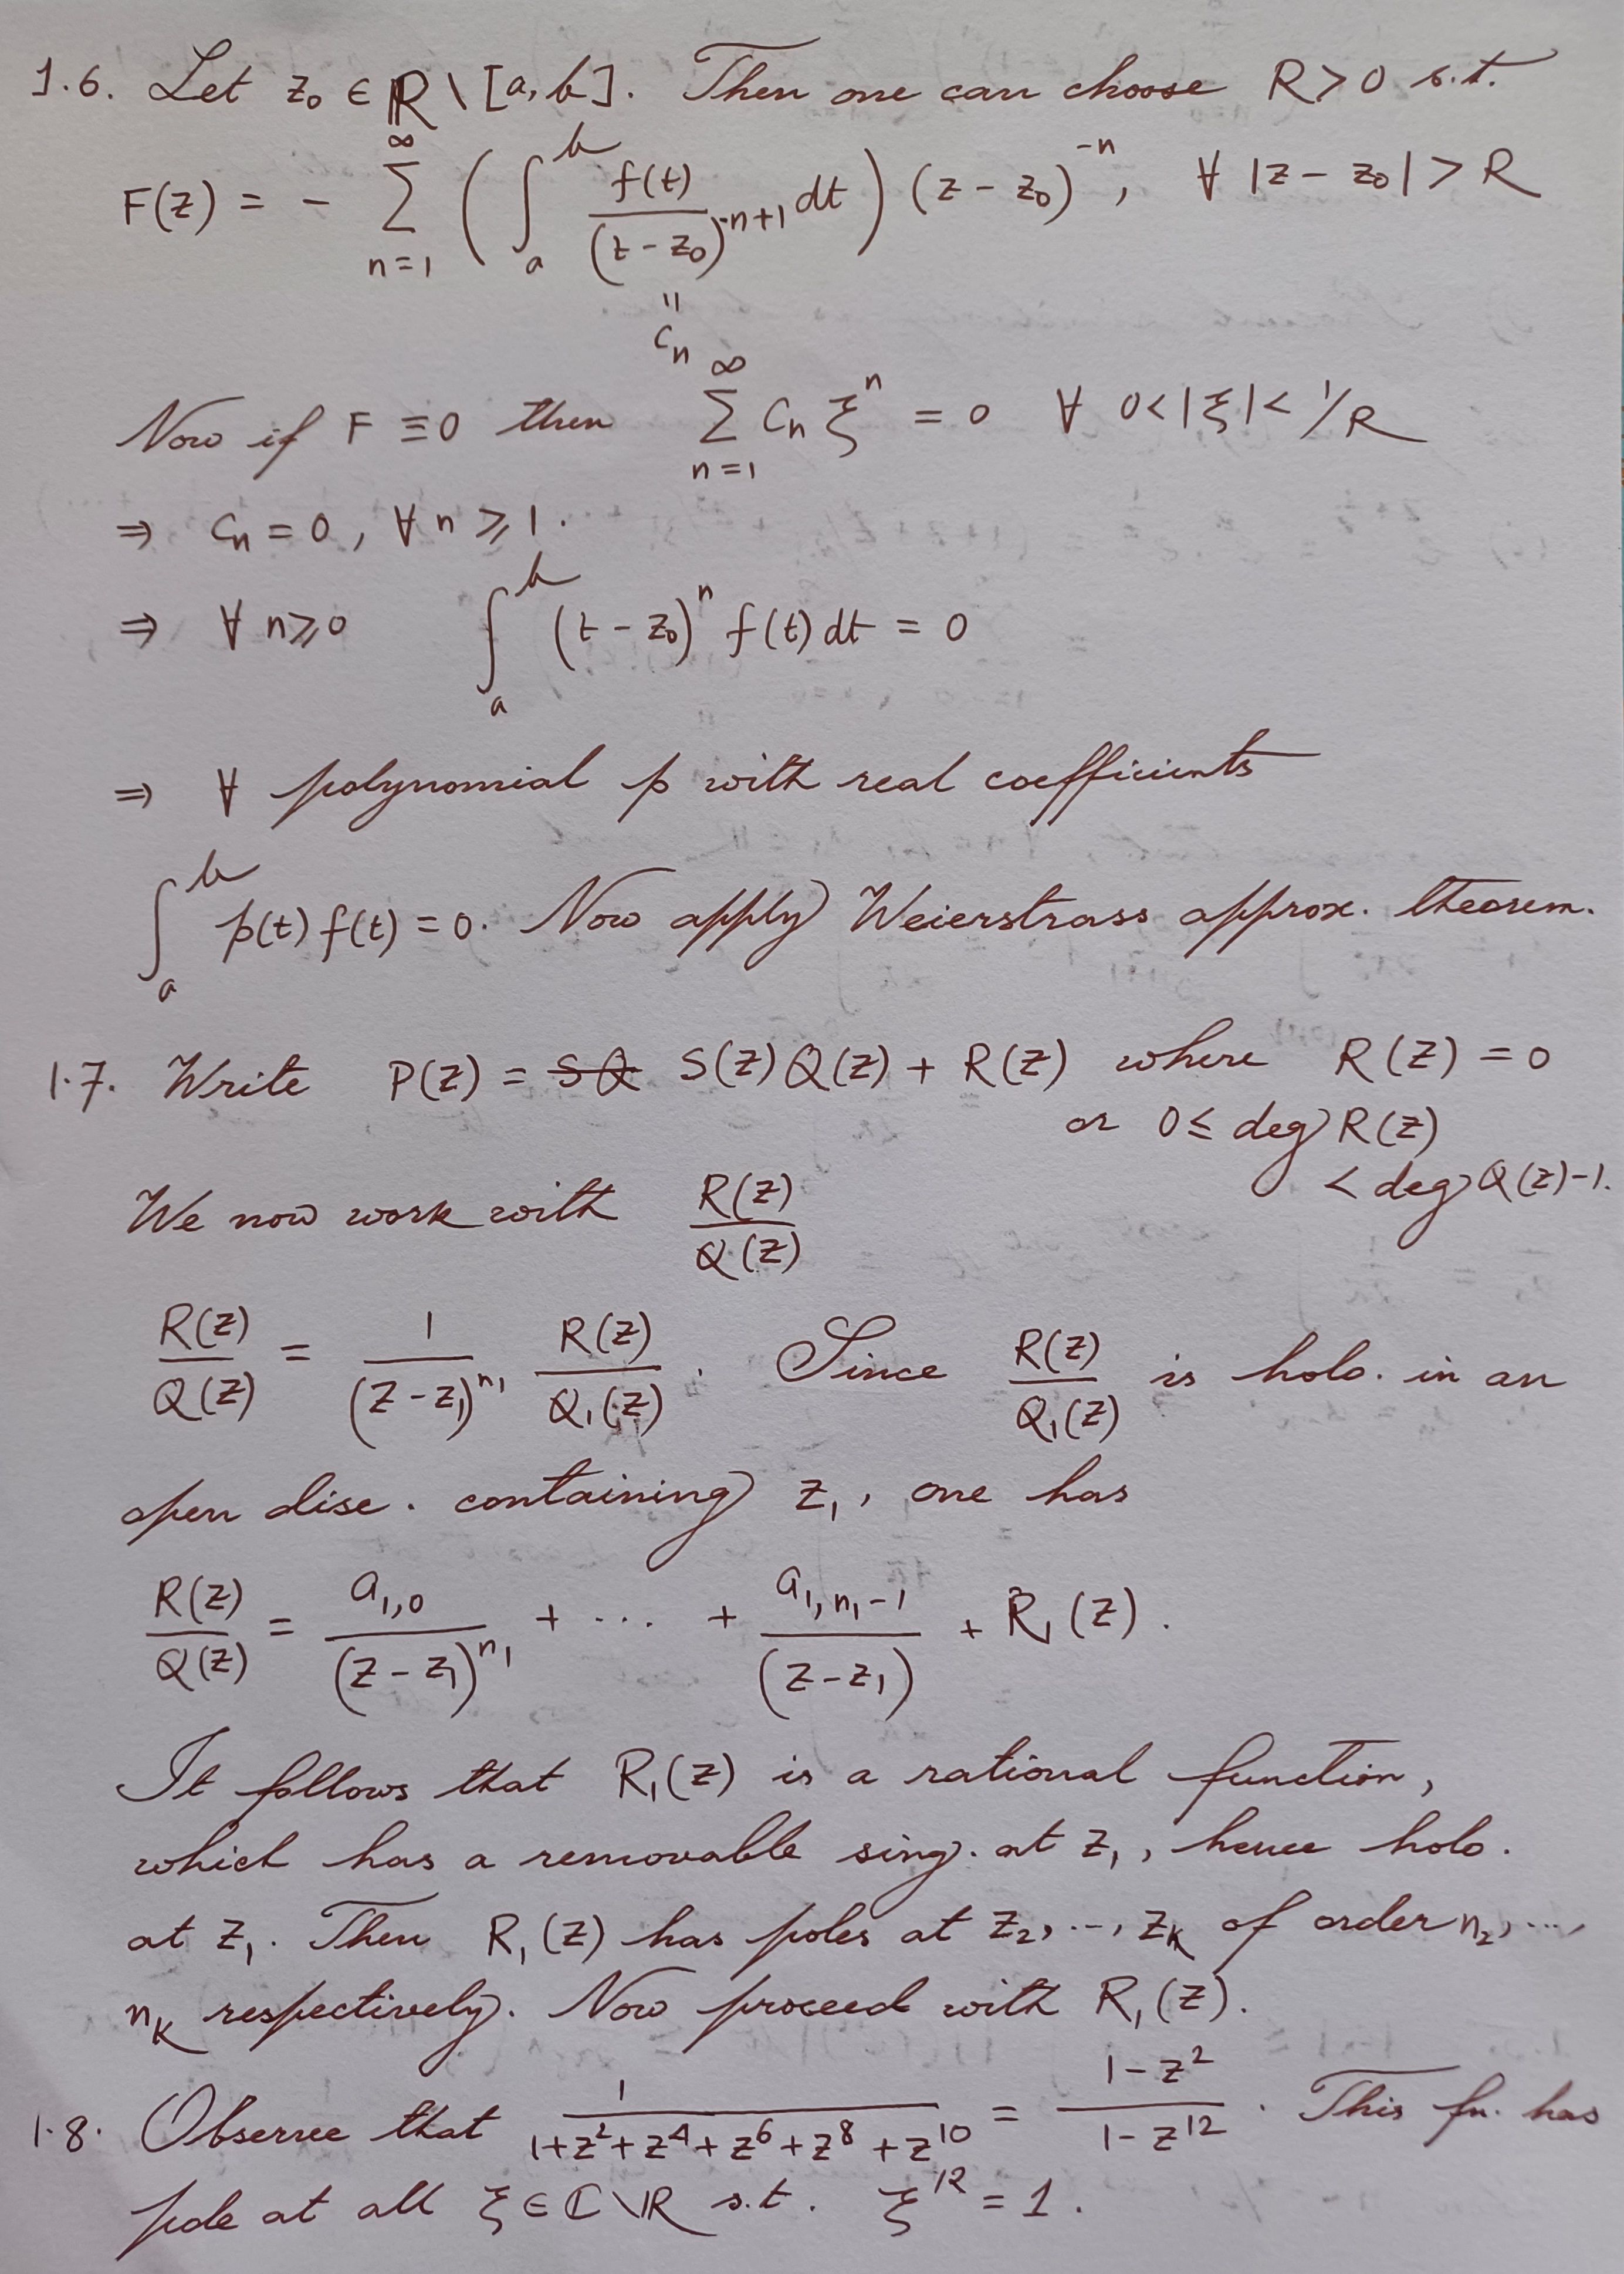 1.6. Let z₀ ∈ ℝ \ [a, b]. Then one can choose R > 0 s.t.
F(z) = - ∑_{n=1}^{∞} ( ∫_a^b f(t)/(t - z₀)^{-n+1} dt ) (z - z₀)^{-n}, ∀ |z - z₀| > R
"
cₙ
Now if F ≡ 0 then ∑_{n=1}^{∞} Cₙ ξⁿ = 0 ∀ 0 < |ξ| < 1/R
⇒ cₙ = 0, ∀ n ⩾ 1.
⇒ ∀ n ⩾ 0 ∫_a^b (t - z₀)ⁿ f(t) dt = 0
⇒ ∀ polynomial p with real coefficients
∫_a^b p(t) f(t) = 0. Now apply Weierstrass approx. theorem.
1.7. Write P(z) = ~~SQ~~ S(z) Q(z) + R(z) where R(z) = 0
or 0 ≤ deg R(z)
< deg Q(z) - 1.
We now work with R(z)/Q(z)
R(z)/Q(z) = 1/(z - z₁)^{n₁} R(z)/Q₁(z). Since R(z)/Q₁(z) is holo. in an
open disc. containing z₁, one has
R(z)/Q(z) = a_{1,0}/(z - z₁)^{n₁} + ... + a_{1,n₁-1}/(z - z₁) + R₁(z).
It follows that R₁(z) is a rational function,
which has a removable sing. at z₁, hence holo.
at z₁. Then R₁(z) has poles at z₂, ..., z_k of order n₂, ...,
n_k respectively. Now proceed with R₁(z).
1.8. Observe that 1/(1+z²+z⁴+z⁶+z⁸+z¹⁰) = (1-z²)/(1-z¹²). This fn. has
pole at all ξ ∈ ℂ\ℝ s.t. ξ¹² = 1.